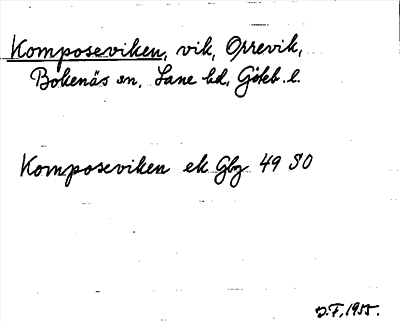 Komposeviken, vik, Orrevik,
Bokenäs sn, Lane hd, Göteb. l.
Komposeviken ek Gbg 49 SO
D.F. 1955.